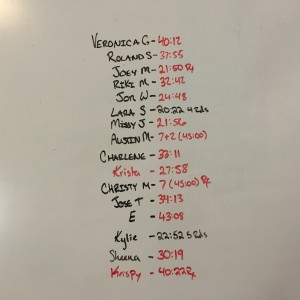 VERONICA G - 40:12
ROLAND S - 37:55
JOEY M - 21:50 Rx
RIKI M - 32:42
JON W - 24:48
LARA S - 20:22 4 Rds
MISSY J - 21:56
AUSTIN M - 7+2 (45:00)
CHARLENE - 33:11
Krista - 27:58
CHRISTY M - 7 (45:00) Rx
JOSE T - 34:13
E - 43:08
Kylie - 22:52 5 Rds
Sheena - 30:19
KRISPY - 40:22 Rx